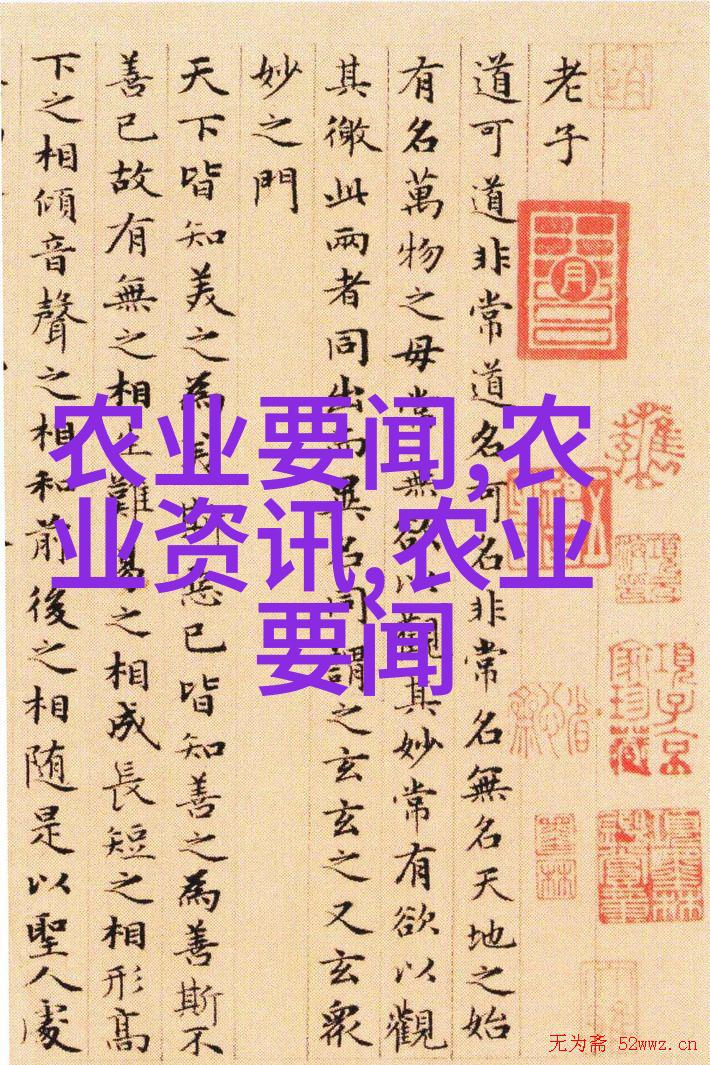 老子
道可道非常道名可名非常名無名天地之始
有名萬物之母常無欲以觀其妙常有欲以觀
其徼此兩者同出而異名同謂之玄玄之又玄衆
妙之門
天下皆知美之為美斯惡已皆知善之為善斯不
善已故有無之相生難易之相成長短之相形高
下之相傾音聲之相和前後之相随是以聖人處
农业要闻,农
业资讯,农业
要闻
項子京
家珍藏
无为斋 52wwz.cn